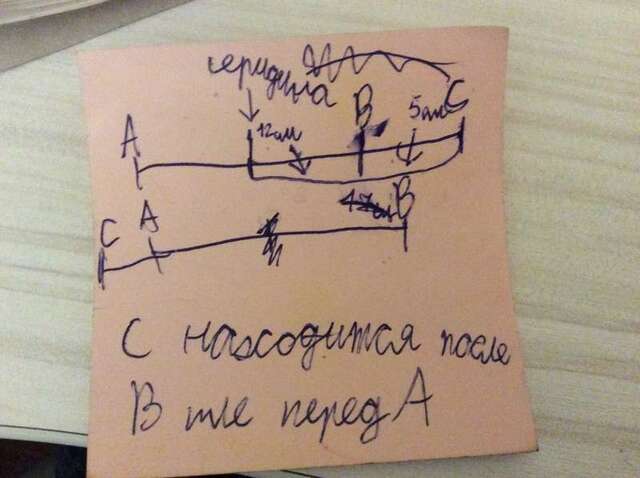 середина
A 12см B 5см C
C A B
C находится после
B иле перед A